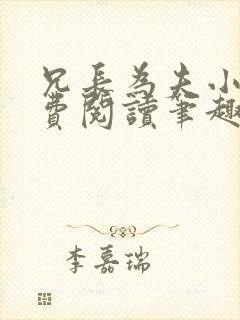 兄長為夫小
費閱讀筆趣
李嘉瑞